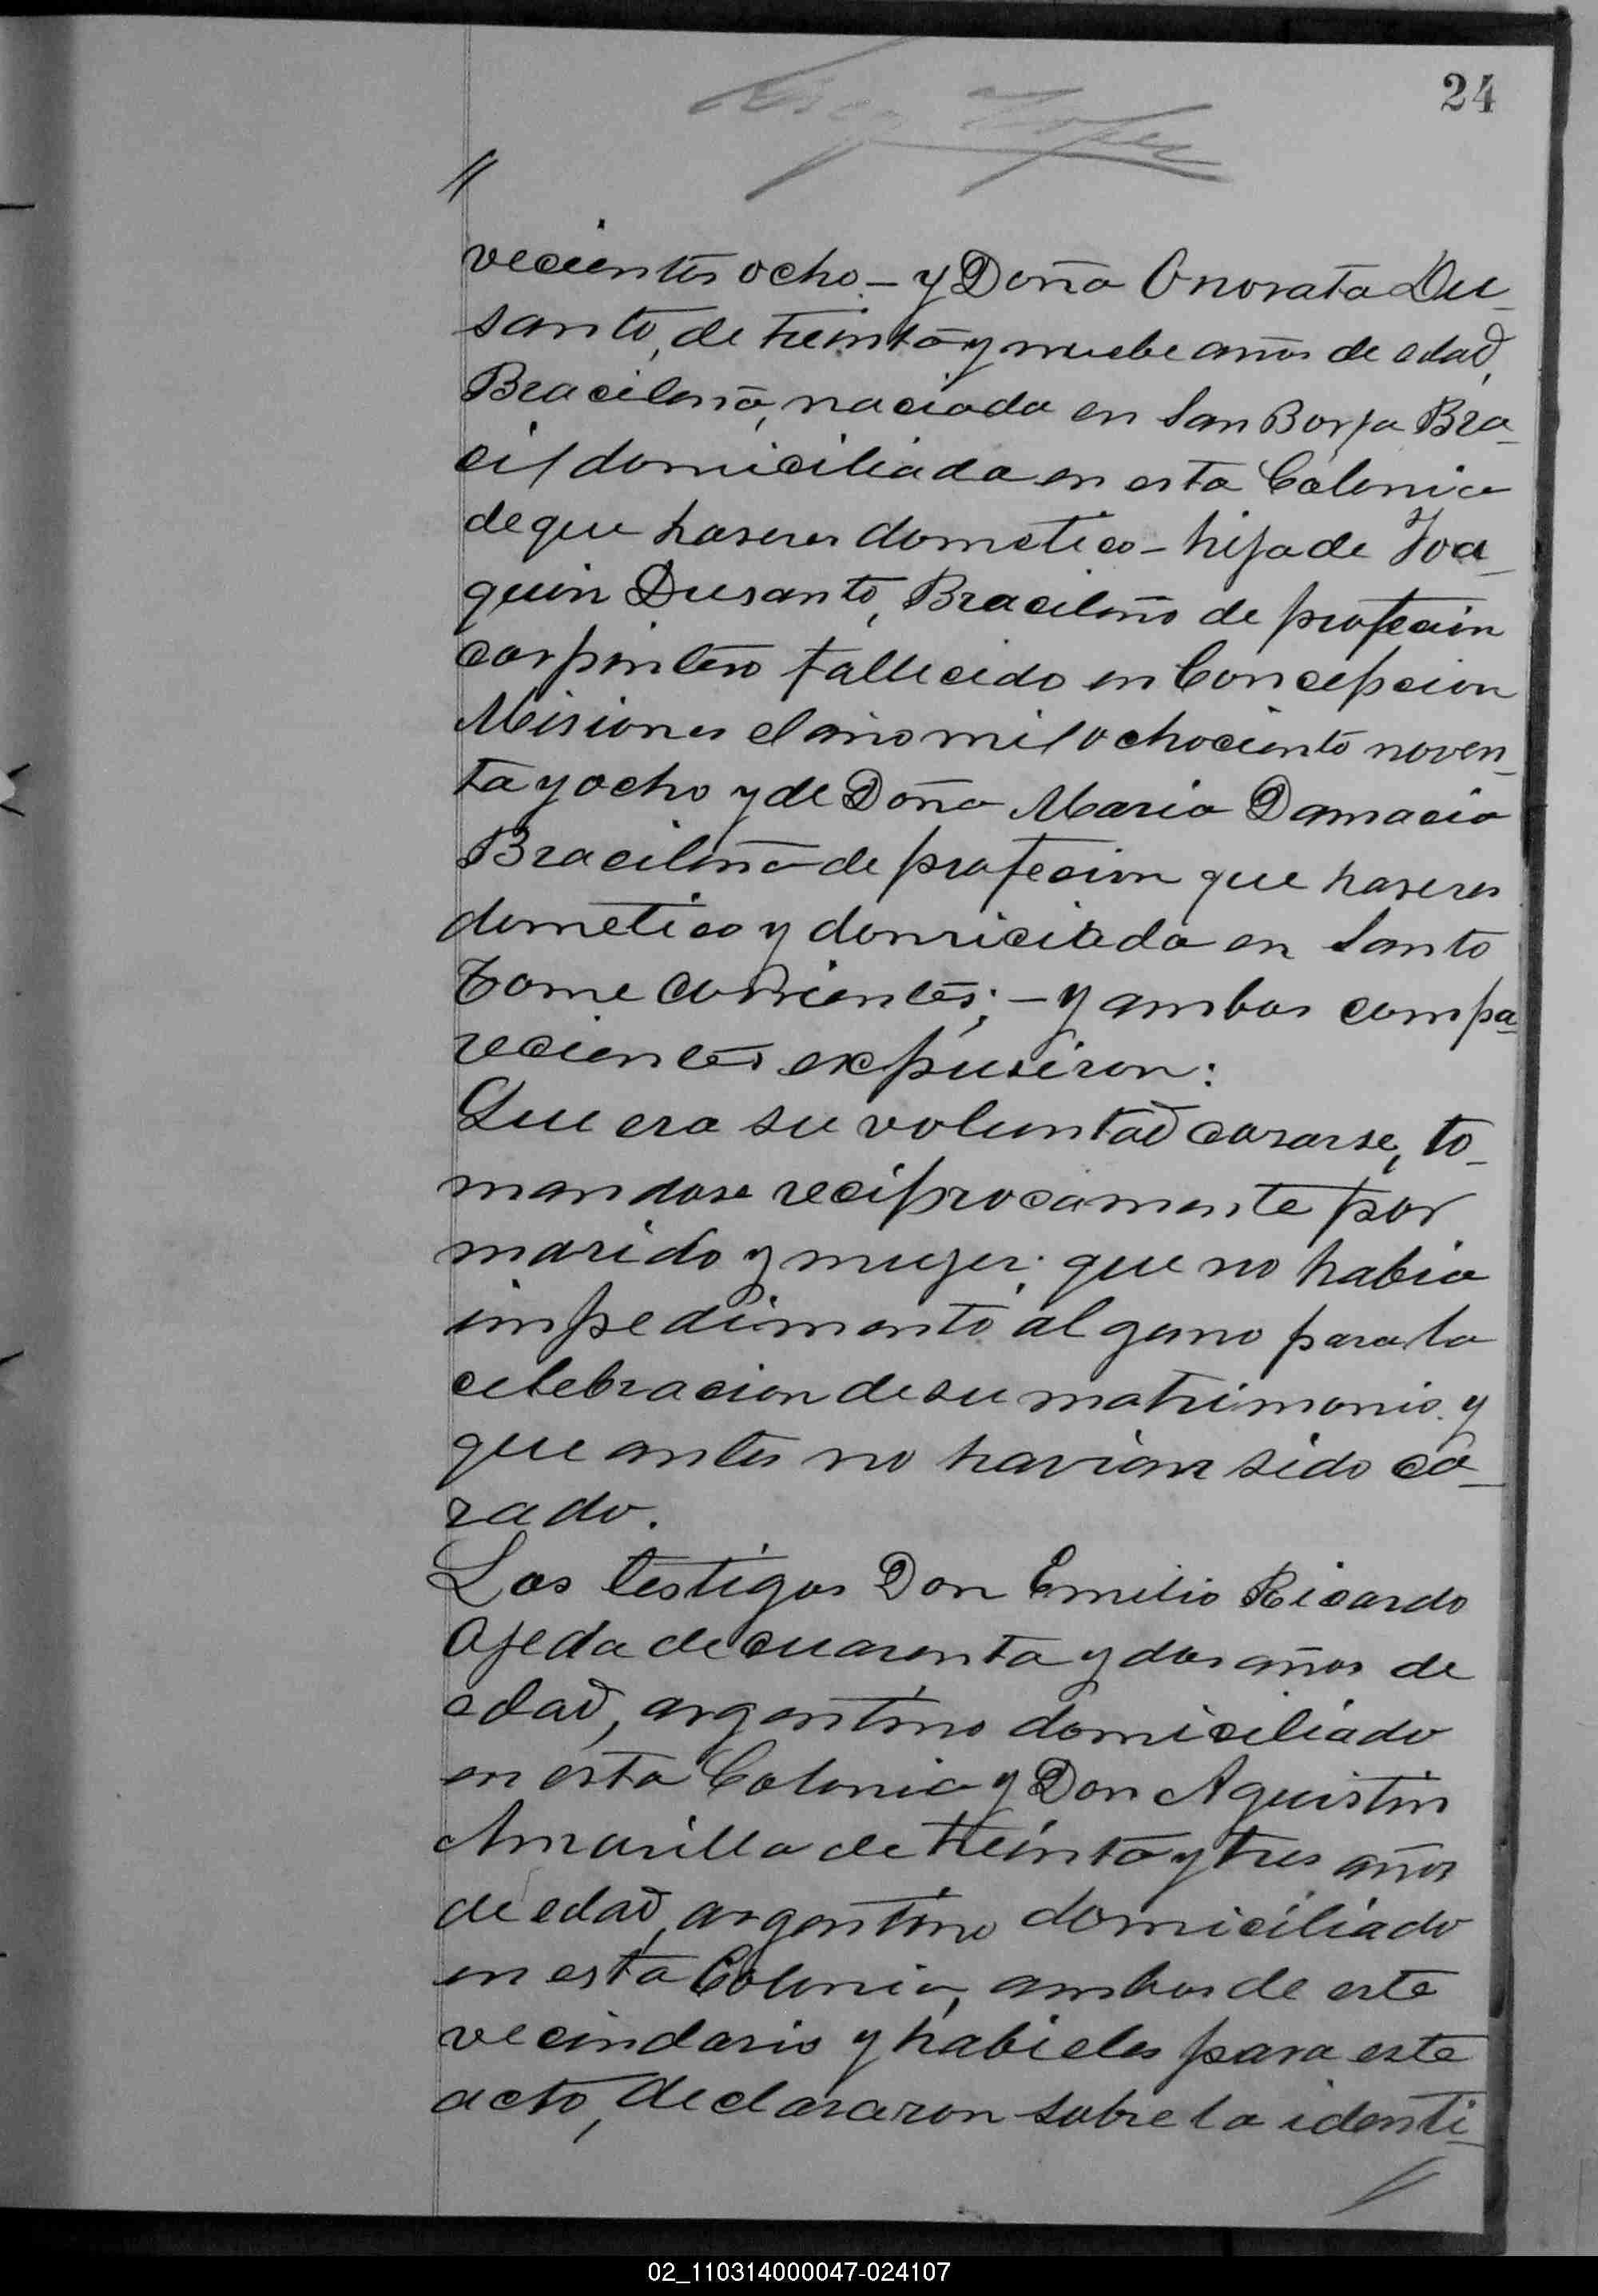 24
//
vecientos ocho. – y Doña Onorata Du-
santo, de treinta y nuebe años de edad,
Bracileña, naciada en San Borja Bra-
cil domiciliada en esta Colonia
de que haseres dometico – hija de Joa-
quin Dusanto, Bracileño de profecion
carpintero fallecido en Concepcion
Misiones el año mil ochociento noven-
ta y ocho y de Doña Maria Damacia
Bracileña de profecion que haseres
dometico y domiciliada en Santo
Tome Corrientes; – y ambos compa-
recientes expusiron:
Que era su voluntad casarse, to-
mandose reciprocamente por
marido y mujer; que no habia
impedimento alguno para la
celebracion de su matrimonio y
que antes no havian sido ca-
zado.
Los testigos Don Emilio Ricardo
Ojeda de cuarenta y dos años de
edad, argentino domiciliado
en esta Colonia y Don Aguistin
Amarilla de treinta y tres años
de edad, argentino domiciliado
en esta Colonia, ambos de este
vecindario y habieles para este
acto, declararon sobre la identi-
/
02_110314000047-024107